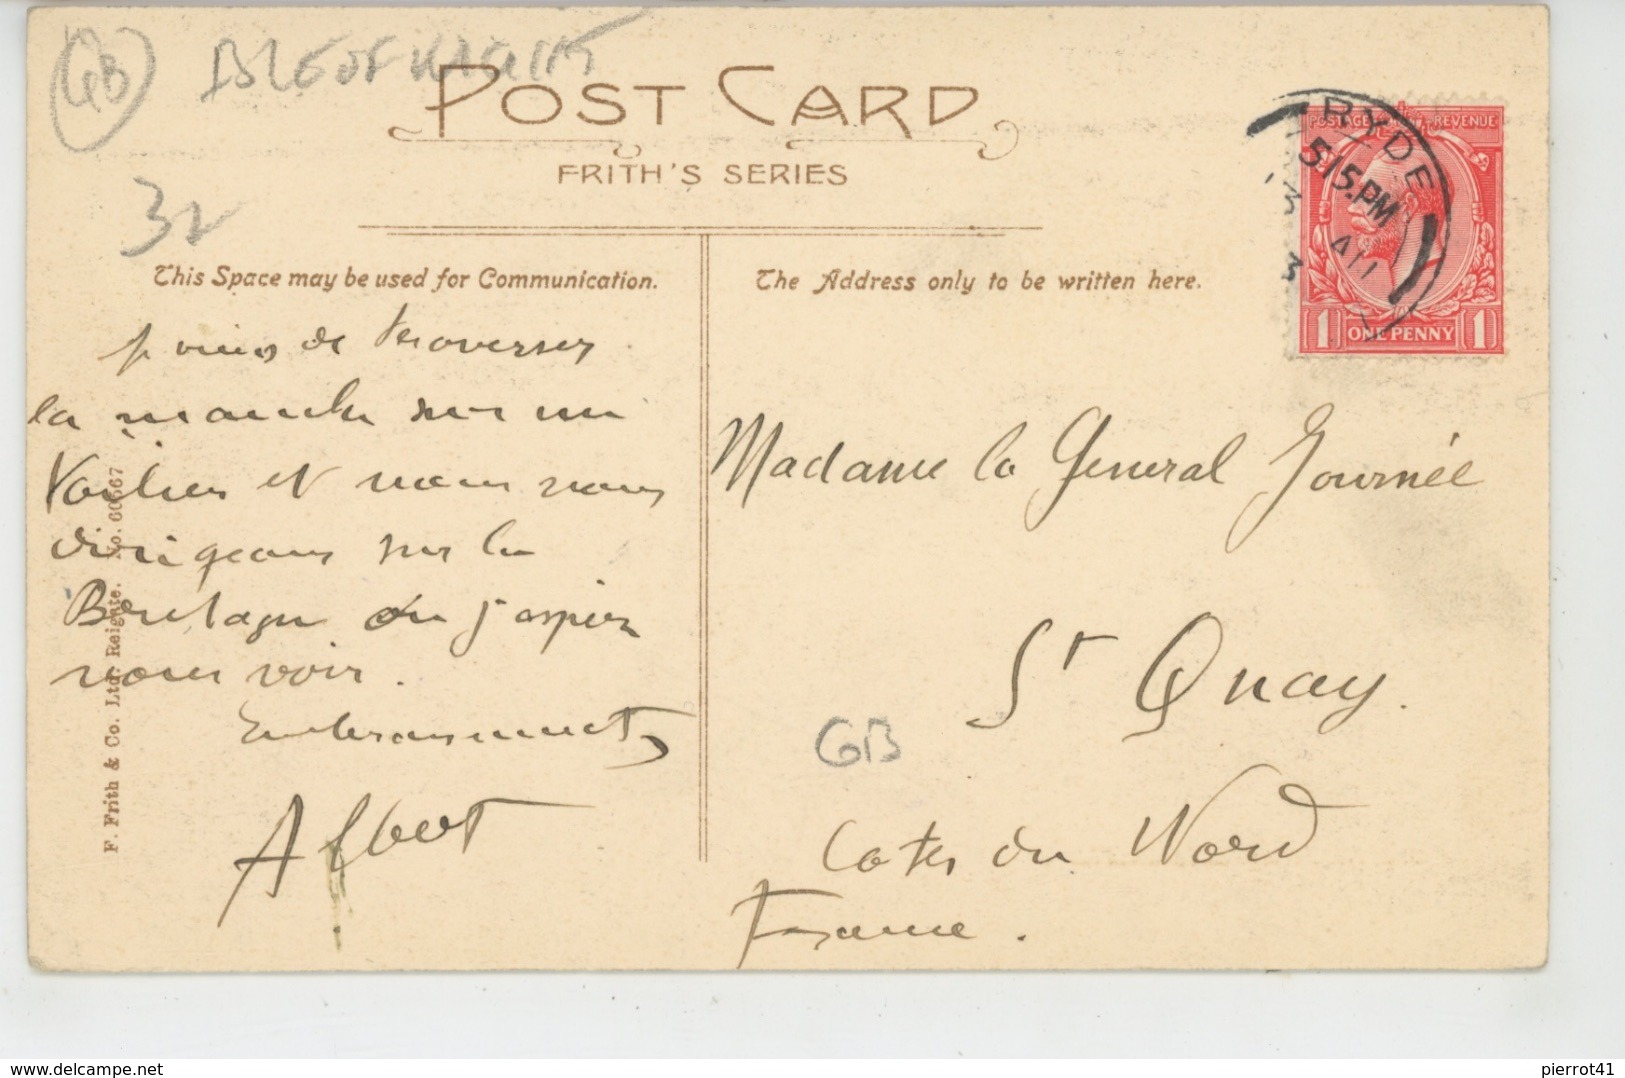 GB
ISLE OF WIGHT
POST CARD
FRITH'S SERIES
32
This Space may be used for Communication.
The Address only to be written here.
POSTAGE REVENUE
RYDE
5 15.PM
AU
13
1 ONE PENNY 1
je viens de traverser
la manche sur un
Voilier et nous nous
dirigeons sur la
Bretagne ou j'espère
vous voir.
Embrassements
Albert
Madame la General Journée
St Quay.
GB
Cotes du Nord
France.
F. Frith & Co. Ltd. Reigate. No. 60567
www.delcampe.net
pierrot41